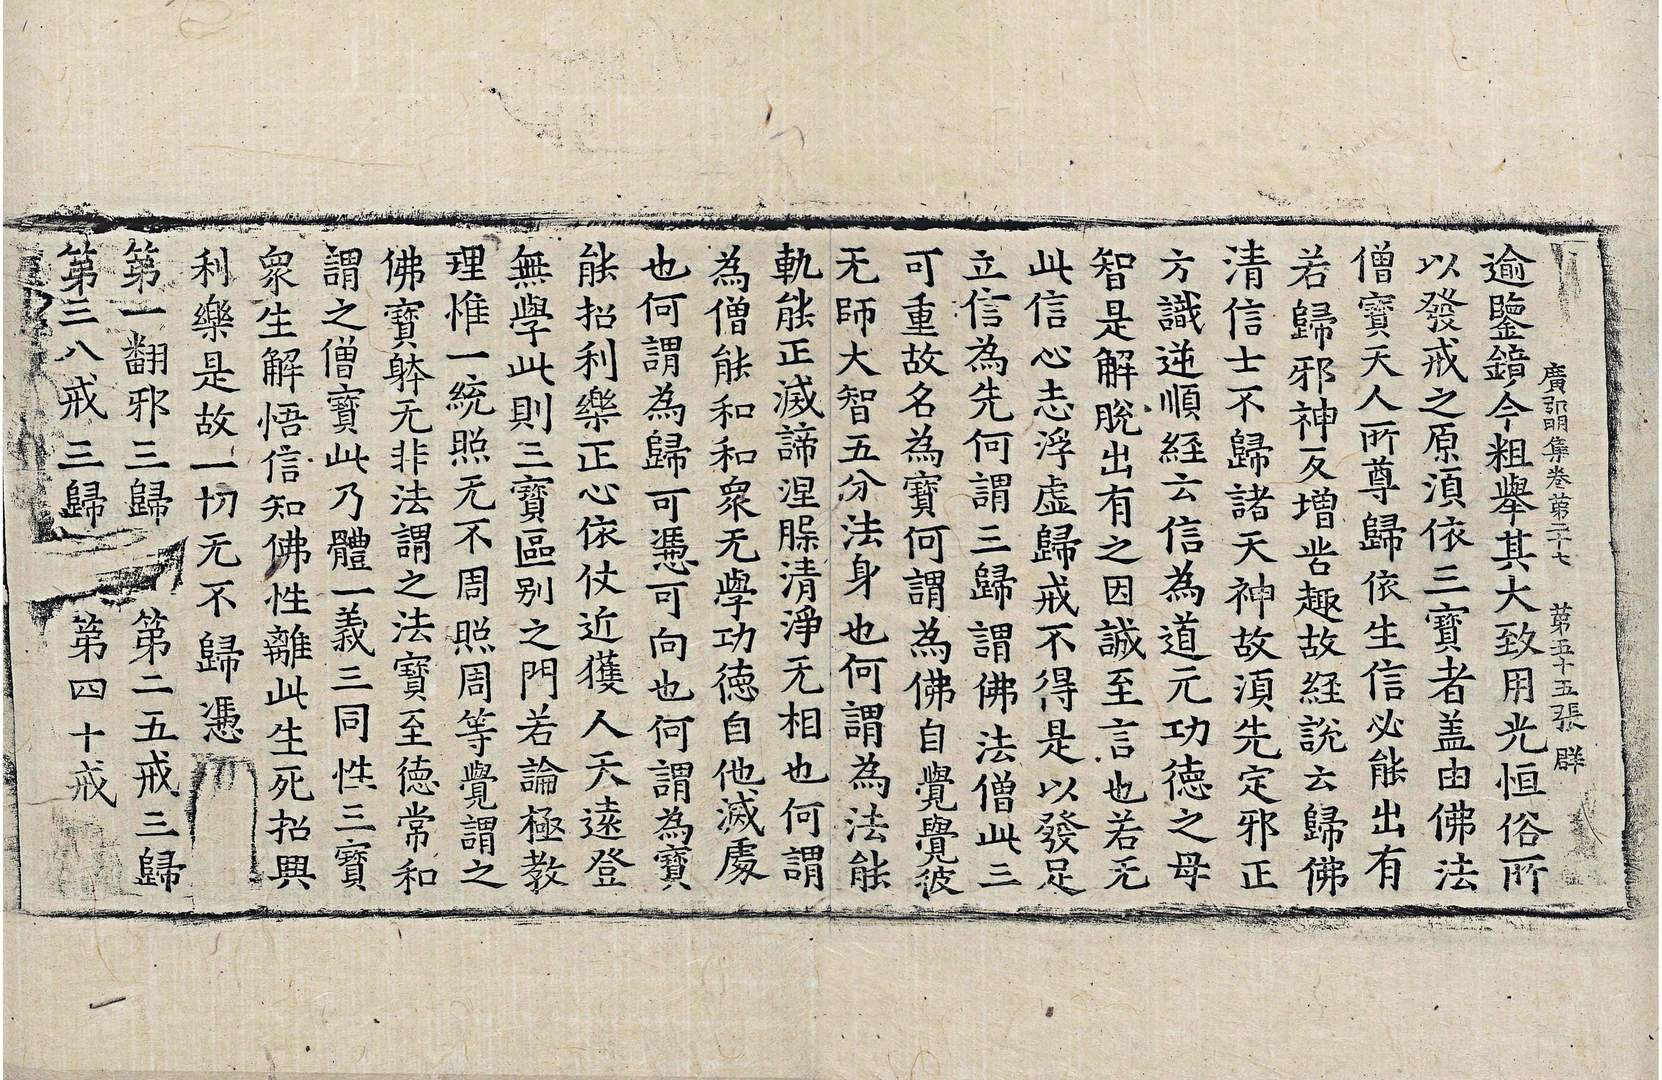 廣弘明集卷第二十七 第五十五張 群
逾鑒錯今粗舉其大致用光恒俗所
以發戒之原須依三寶者盖由佛法
僧寶天人所尊歸依生信必能出有
若歸邪神反增苦趣故経說云歸佛
清信士不歸諸天神故須先定邪正
方識逆順経云信為道元功德之母
智是解脫出有之因誠至言也若无
此信心志浮虛歸戒不得是以發足
立信為先何謂三歸謂佛法僧此三
可重故名為寶何謂為佛自覺覺彼
无師大智五分法身也何謂為法能
軌能正滅諦涅槃清淨无相也何謂
為僧能和和衆无學功德自他滅處
也何謂為歸可憑可向也何謂為寶
能招利樂正心依仗近獲人天遠登
無學此則三寶區别之門若論極教
理惟一統照无不周照周等覺謂之
佛寶躰无非法謂之法寶至德常和
謂之僧寶此乃體一義三同性三寶
衆生解悟信知佛性離此生死招興
利樂是故一切无不歸憑
第一翻邪三歸 第二五戒三歸
第三八戒三歸 第四十戒